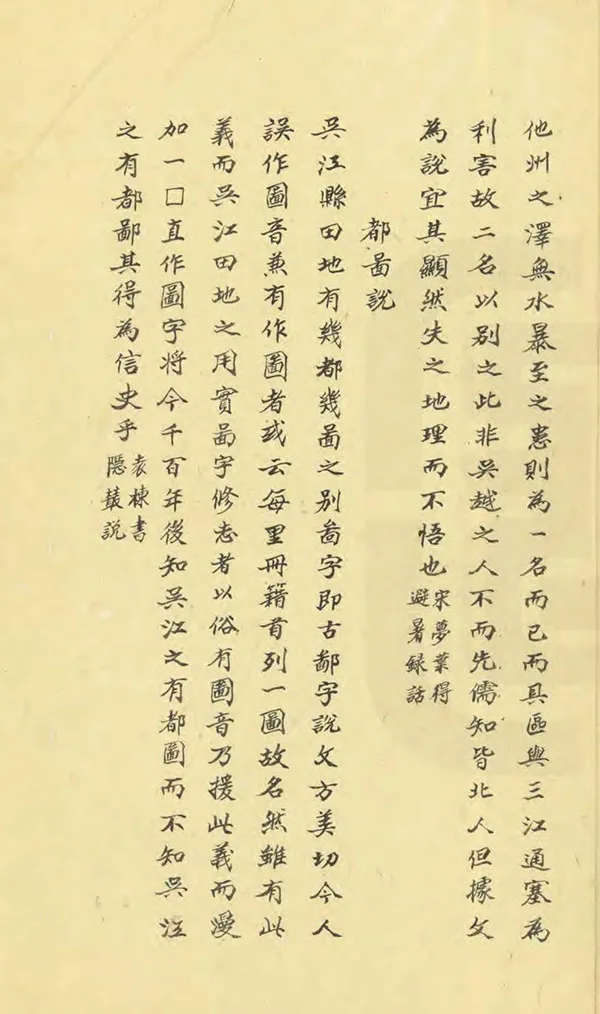 他州之澤無水暴至之患則為一名而已而具區與三江通塞為
利害故二名以別之此非吳越之人不而先儒知皆北人但據文
為說宜其顯然失之地理而不悟也宋夢葉得
避暑録話
都啚說
吳江縣田地有幾都幾啚之別啚字即古鄙字說文方美切今人
誤作圖音兼有作圖者或云每里冊籍首列一圖故名然雖有此
義而吳江田地之用實啚字修志者以俗有圖音乃援此義而漫
加一囗直作圖字将今千百年後知吳江之有都圖而不知吳江
之有都鄙其得為信史乎袁棟書
隱叢說